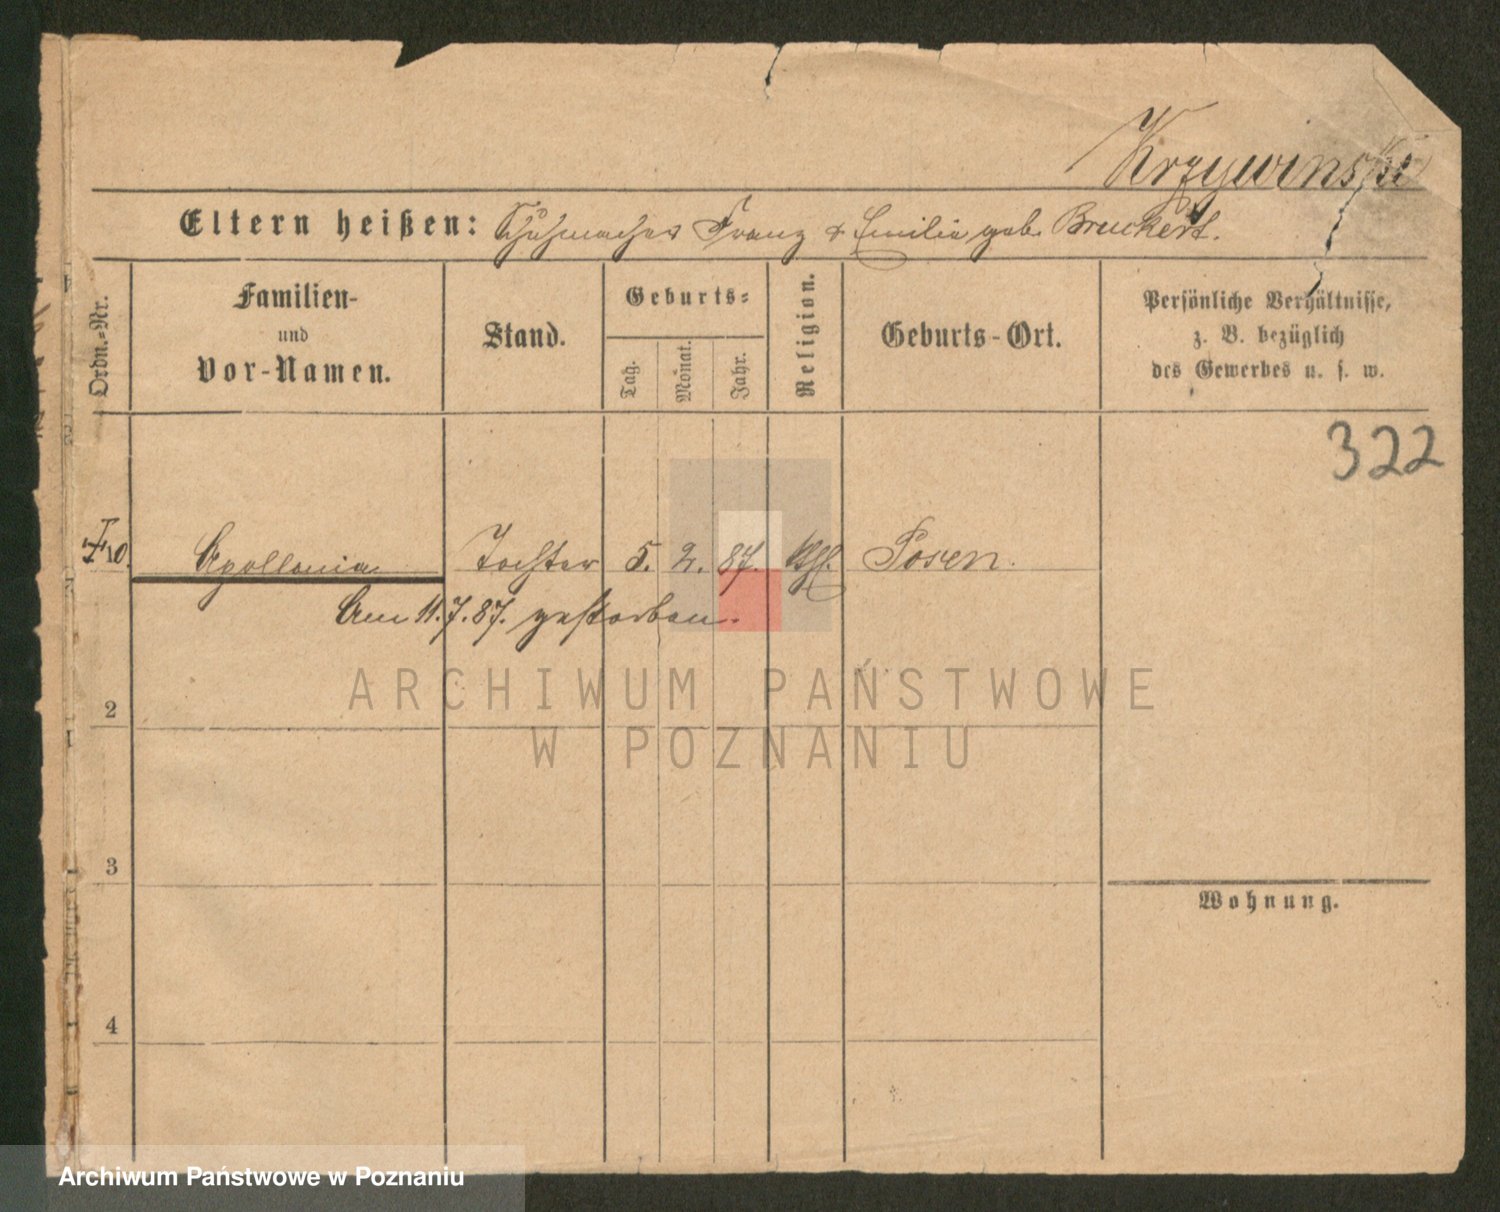 Krzywinski
Eltern heißen: Schuhmacher Franz & Emilie geb.
Ordn.-Nr.
Familien-
und
Vor-Namen.
Stand.
Geburts-
Tag.
Monat.
Jahr.
Religion.
Geburts-Ort.
Persönliche Verhältnisse,
z. B. bezüglich
des Gewerbes u. s. w.
322
10. Apollonia Tochter 5. 2. 87. kth. Posen.
Am 11.7.87. gestorben.
2
3
4
Wohnung.
ARCHIWUM PAŃSTWOWE
W POZNANIU
Archiwum Państwowe w Poznaniu